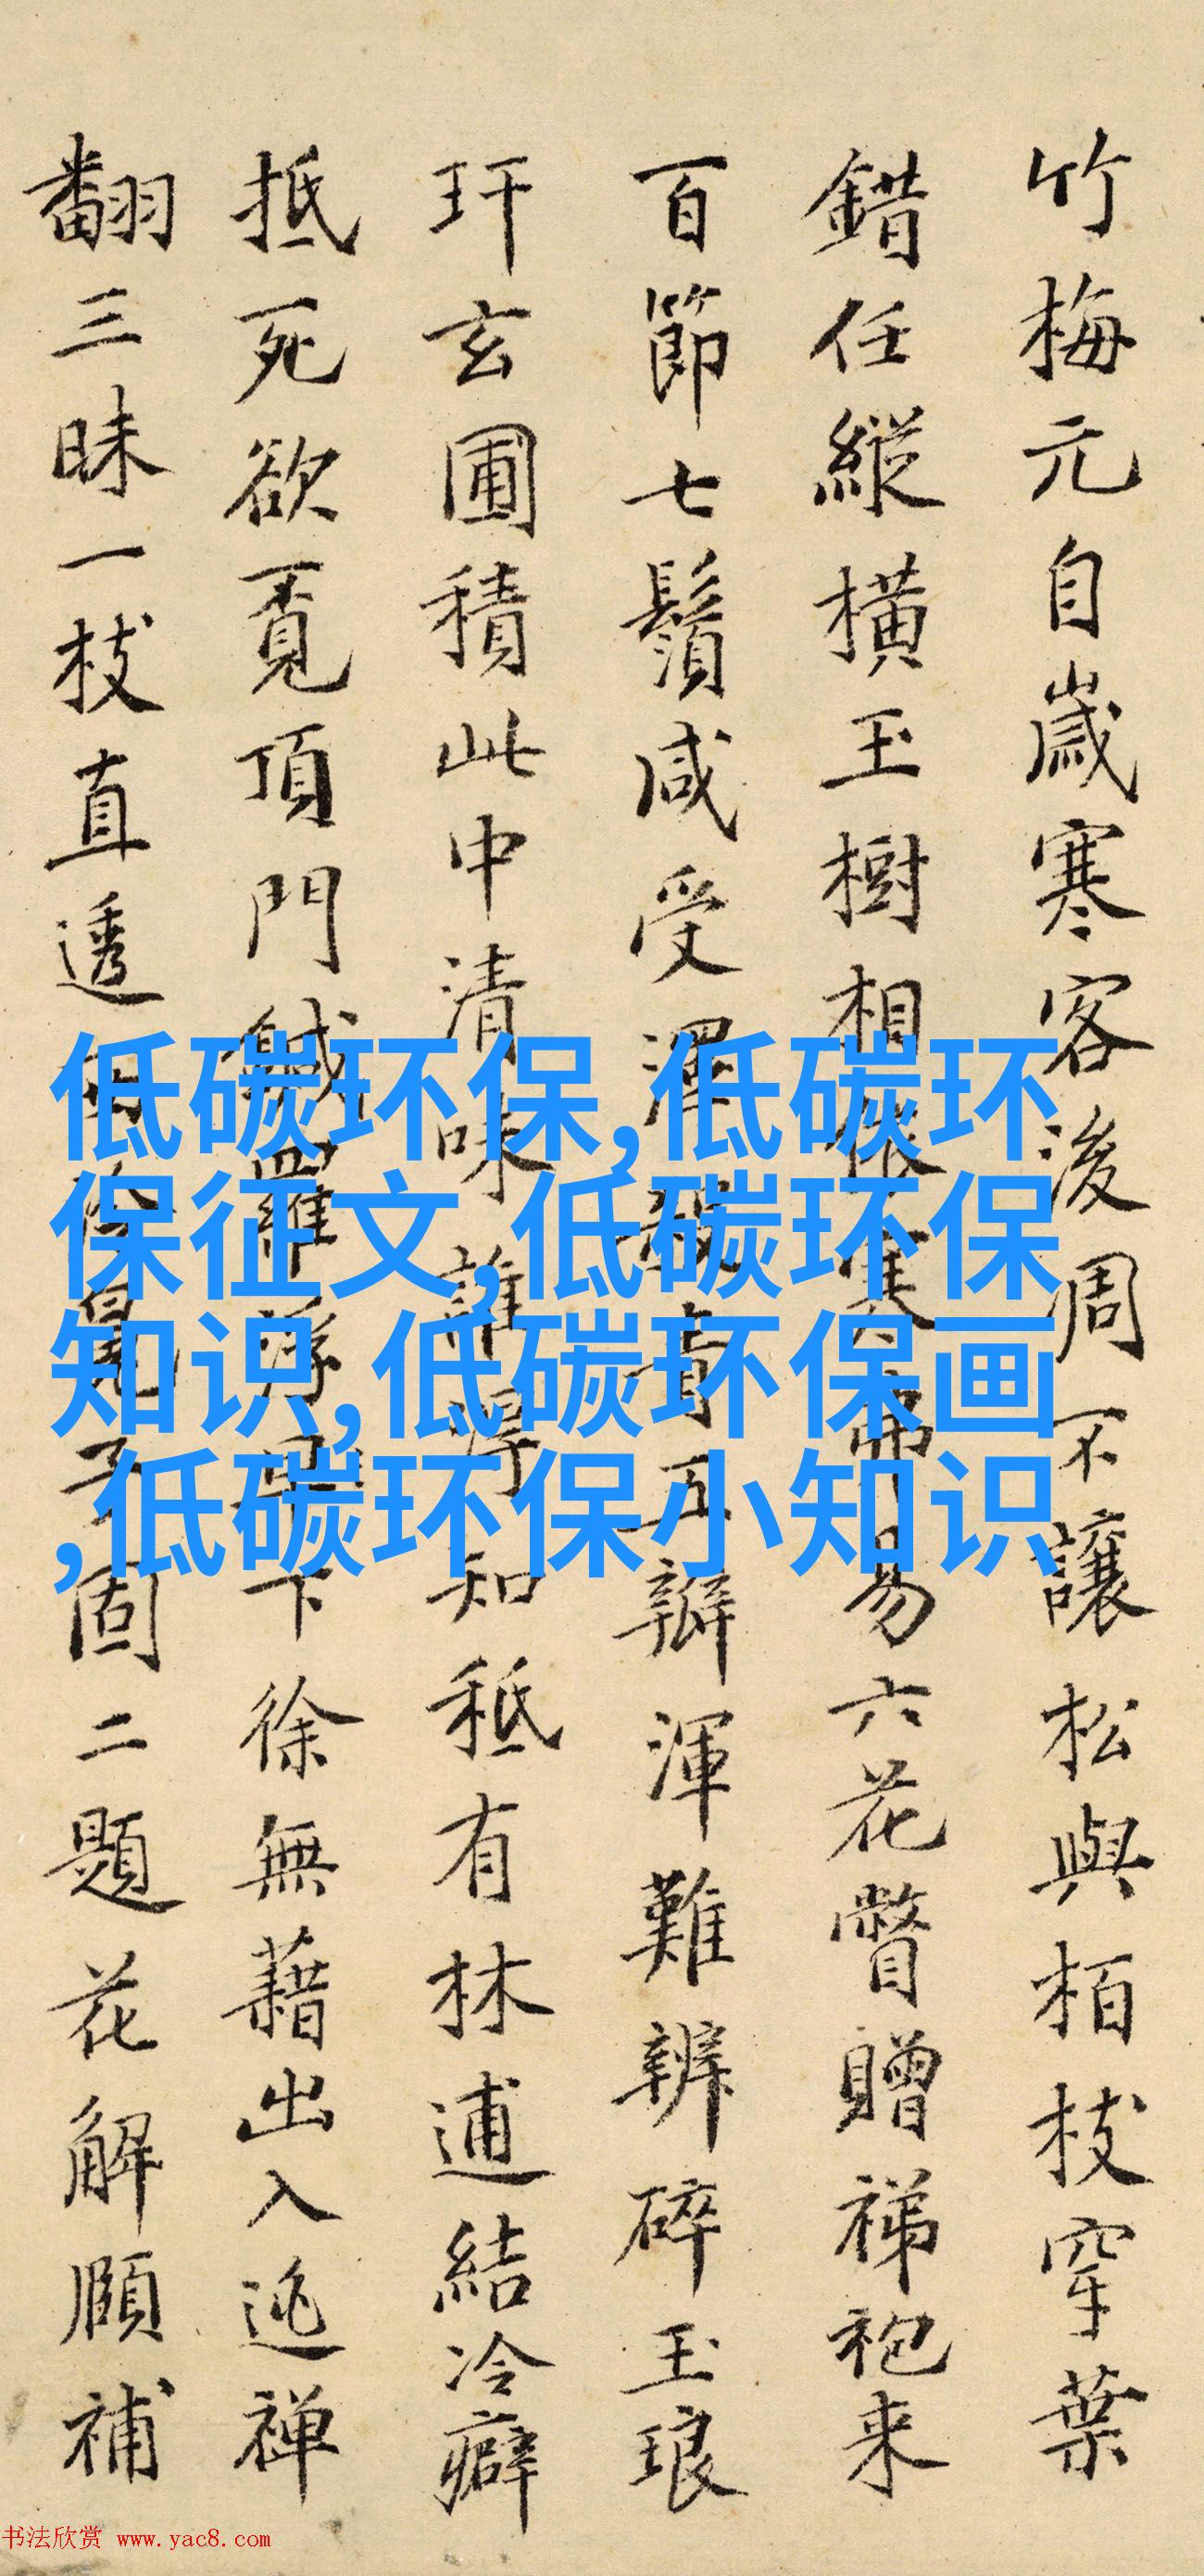 竹梅元自歲寒客後凋不讓松與栢枝穿葉
錯任縱橫玉樹相依寒帯易六花瞥贈祶袍来
百節七鬚咸受澤
五瓣渾難辨碎玉琅
玕玄圃積此中清味誰得知秪有林逋結冷癖
抵死欲覓頂門鍼羅浮
下徐無藉出入逃禅
翻三昧一枝直透
子固二題花解頤補
低碳环保,低碳环
保征文,低碳环保
知识,低碳环保画
,低碳环保小知识
书法欣赏 www.yac8.com